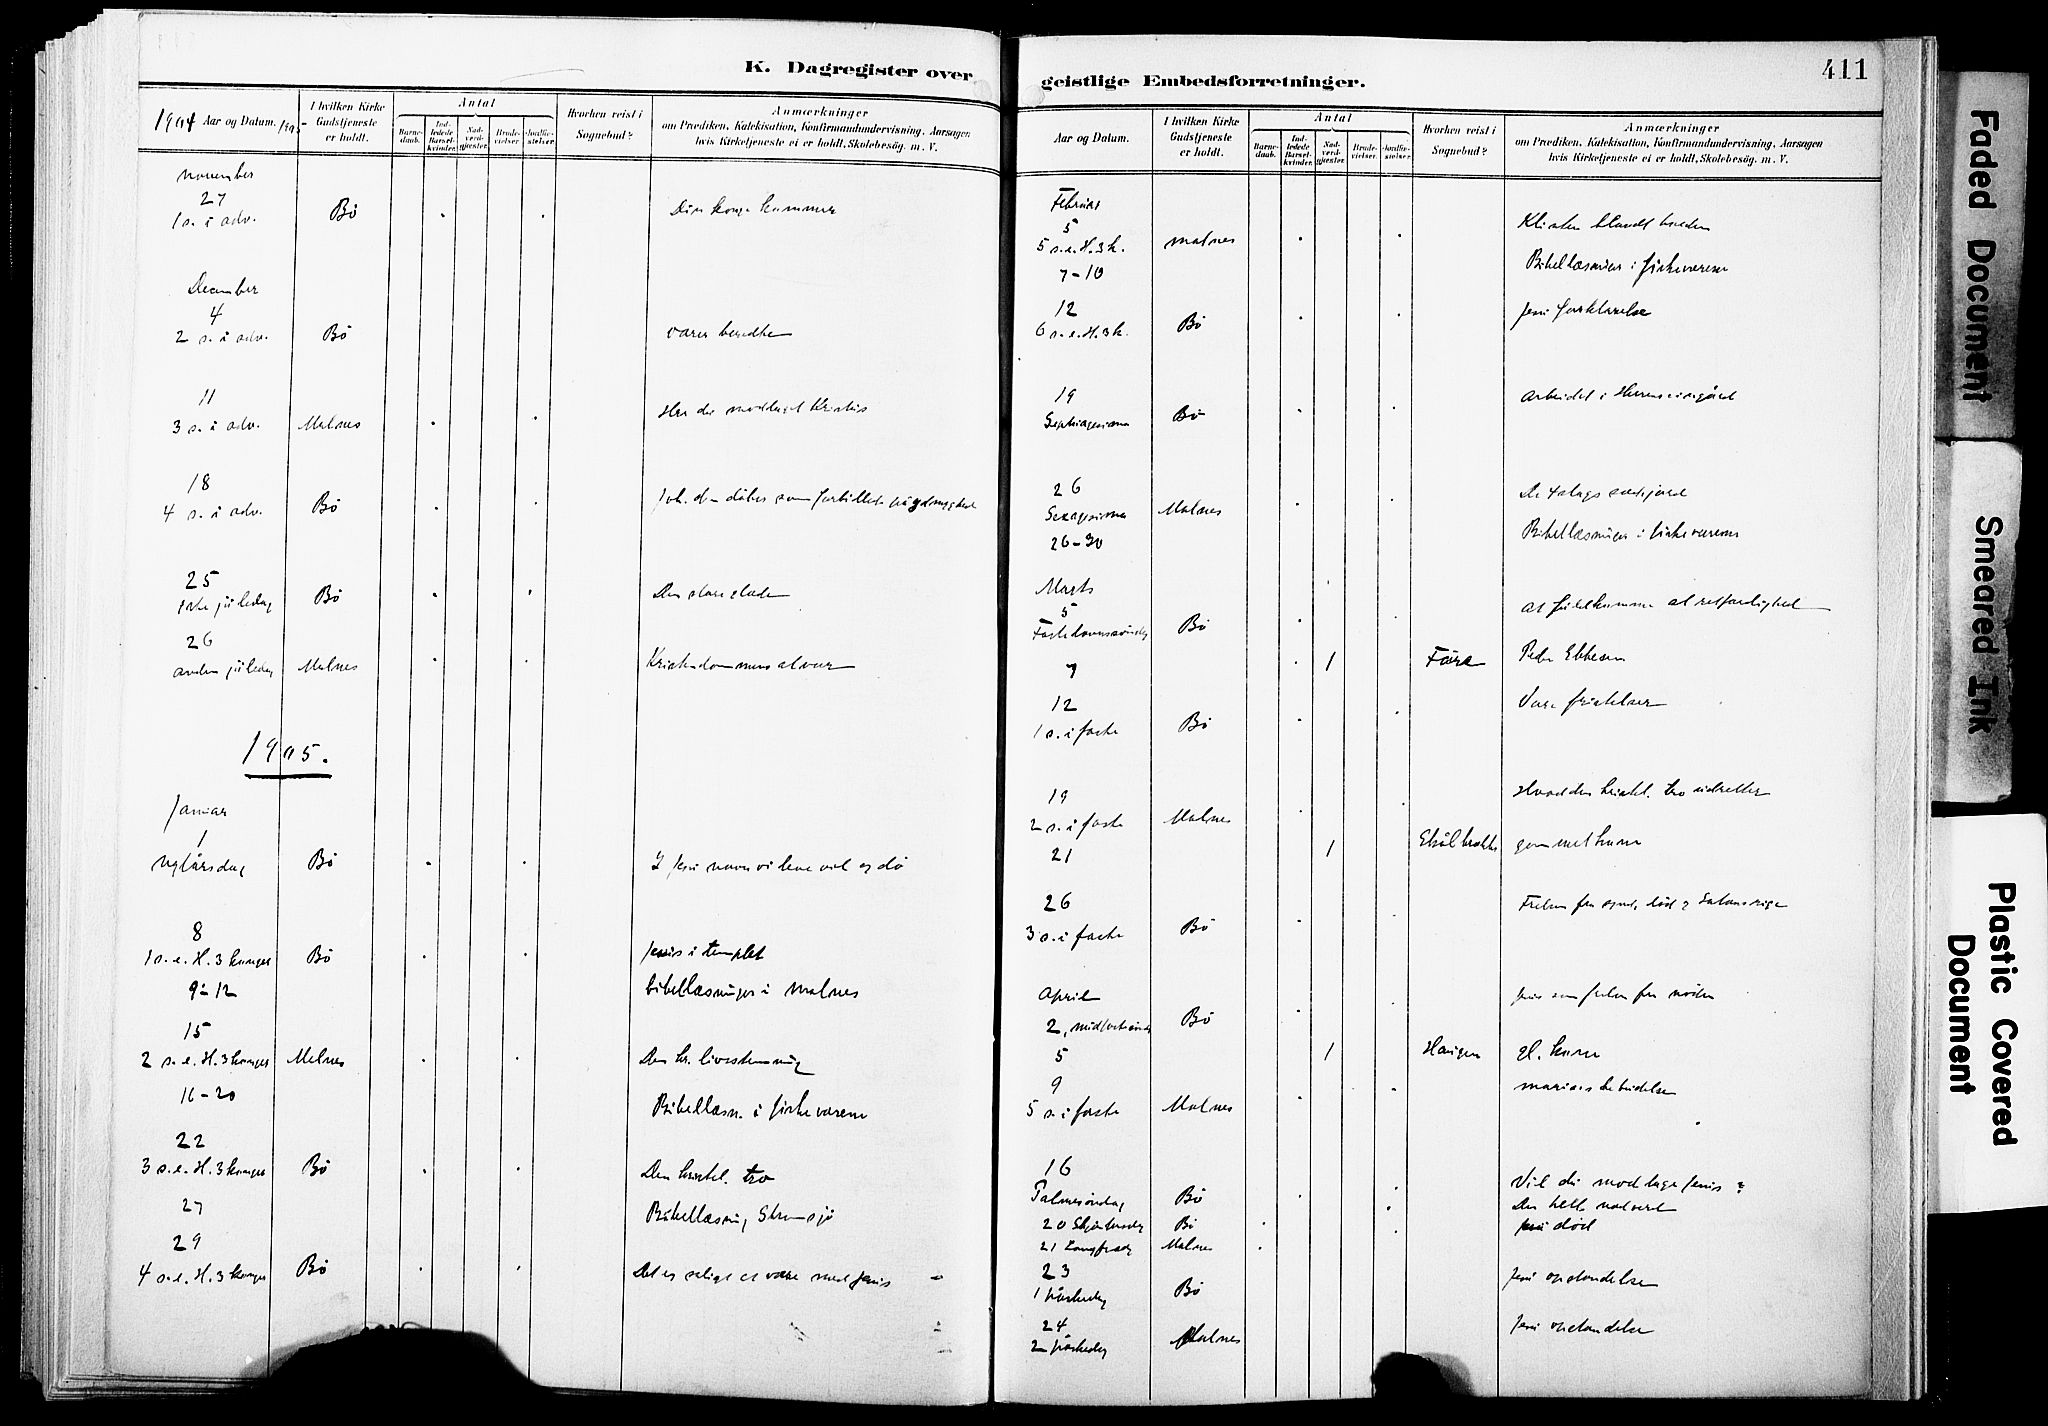 K. Dagregister over
1904 Aar og Datum. 1905
I hvilken Kirke Gudstjeneste er holdt.
Antal
Barnedaab.
Indledede Barselkvinder.
Nadverdgjæster.
Brudevielser.
Jordfæstelser.
Hvorhen reist i Sognebud?
Anmærkninger
om Prædiken, Katekisation, Konfirmandundervisning, Aarsagen
hvis Kirketjeneste ei er holdt, Skolebesög. m. V.
November
27
1 s. i adv. Bö Din konge kommer
December
4
2 s. i adv. Bö Værer beredte
11
3 s. i adv. Malnes Har du modtaget Kristus
18
4 s. i adv. Bö Joh. d. döber som forbillede på ydmyghed
25
1ste juledag Bö Den store glæde
26
anden juledag Malnes Kristendommens alvor
1905.
Januar
1
nytårsdag Bö I Jesu navn vi leve vil og dö
8
1 s. e. H. 3 konger Bö Jesus i templet
9-12 bibellæsninger i Malnes
15
2 s. e. H. 3 konger Malnes Den kr. livsstemning
16-20 Bibellæsn. i fiskeværene
22
3 s. e. H. 3 konger Bö Den kristel. tro
27 Bibellæsning Straumsjö
29
4 s. e. H. 3 konger Bö Det er saligt at være med Jesus
geistlige Embedsforretninger.
411
Aar og Datum.
I hvilken Kirke Gudstjeneste er holdt.
Antal
Barnedaab.
Indledede Barselkvinder.
Nadverdgjæster.
Brudevielser.
Jordfæstelser.
Hvorhen reist i Sognebud?
Anmærkninger
om Prædiken, Katekisation, Konfirmandundervisning, Aarsagen
hvis Kirketjeneste ei er holdt, Skolebesög. m. V.
Februar
5
5 s. e. H. 3 k. Malnes Klinten blandt hveden
7-10 Bibellæsninger i fiskeværene
12
6 s. e. H. 3 k. Bö Jesu forklarelse
19
Septuagesima Bö Arbeidet i Herrens vingård
26
Sexagesima Malnes De 4 slags sædejord
26-30 Bibellæsninger i fiskeværene
Marts
5
Fastelavnssöndag Bö At fuldkomme al retfærdighed
7 1 Före Peder Ebbesen
12
1 s. i faste Bö Vore fristelser
19
2 s. i faste Malnes Hvad den kristel. tro udretter
21 1 gammel kone
26
3 s. i faste Bö Frelsen fra synd, död og Satans rige
April
2, midfastesönd. Bö Jesus som frelser fra nöden
5 1 Haugen gl. kone
9
5 s. i faste Malnes Mariæ bebudelse
16
Palmesöndag Bö Vil du modtage Jesus?
20 Skjærtorsdag Bö Den hell. nadverd
21 Langfredag Malnes Jesu död
23
1 påskedag Bö Jesu opstandelse
24
2 påskedag Malnes Jesu opstandelse
Faded Document
Smeared Ink
Plastic Covered
Document